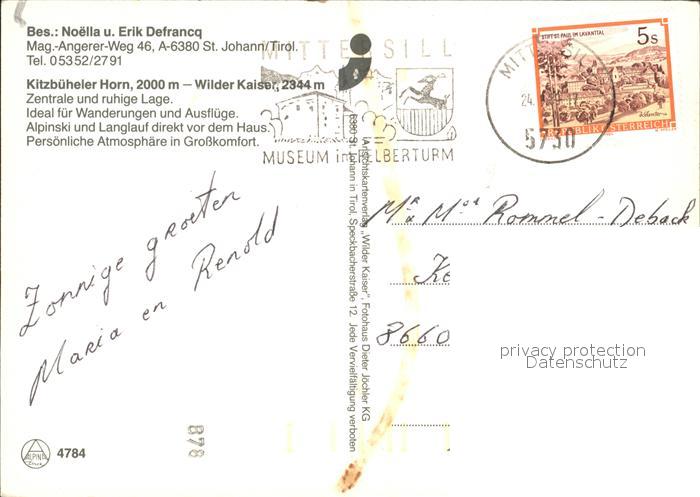 Bes.: Noëlla u. Erik Defrancq
Mag.-Angerer-Weg 46, A-6380 St. Johann/Tirol.
Tel. 05352/2791
Kitzbüheler Horn, 2000 m – Wilder Kaiser, 2344 m
Zentrale und ruhige Lage.
Ideal für Wanderungen und Ausflüge.
Alpinski und Langlauf direkt vor dem Haus.
Persönliche Atmosphäre in Großkomfort.
Zonnige groeten
Maria en Renold
ALPINE
4784
878
MITTERSILL
MUSEUM im FELBERTURM
Ansichtskartenverlag „Wilder Kaiser", Fotohaus Dieter Jöchler KG
6380 St. Johann in Tirol, Speckbacherstraße 12. Jede Vervielfältigung verboten
MITTERSILL
24.
5730
STIFT ST. PAUL IM LAVANTTAL
5s
REPUBLIK ÖSTERREICH
Mr & Mme Rommel - Deback
Ko
8660
privacy protection
Datenschutz